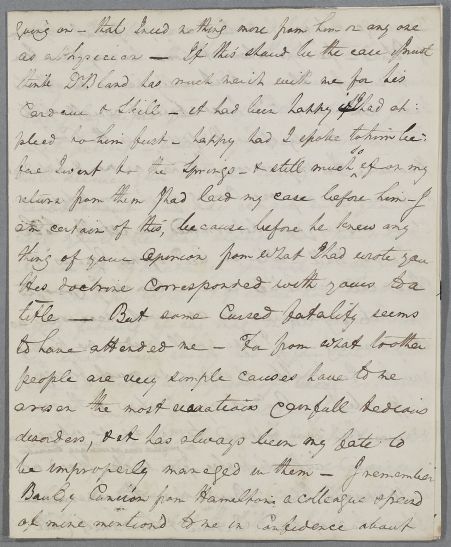 going on – that I need nothing more from him or any one
as a Physician – If this should be the case I must
think Dr Bland has much merit with me for his
Candour & Skill – it had been happy if I had ap:
plied to him first – happy had I spoke to him be:
fore I went to the Springs – & still much so if on my
return from them I had laid my case before him – I
am certain of this, because before he knew any
thing of your Opinion from what I had wrote you
His doctrine corresponded with yours to a
title – But some Cursed fatality seems
to have attended me – For from what to other
people are very simple causes have to me
arisen the most vexatious painfull tedious
disorders, & it has always been my fate to
be improperly managed in them – I remember
from Hamilton a colleague & friend
of mine mention'd to me in Confidence about